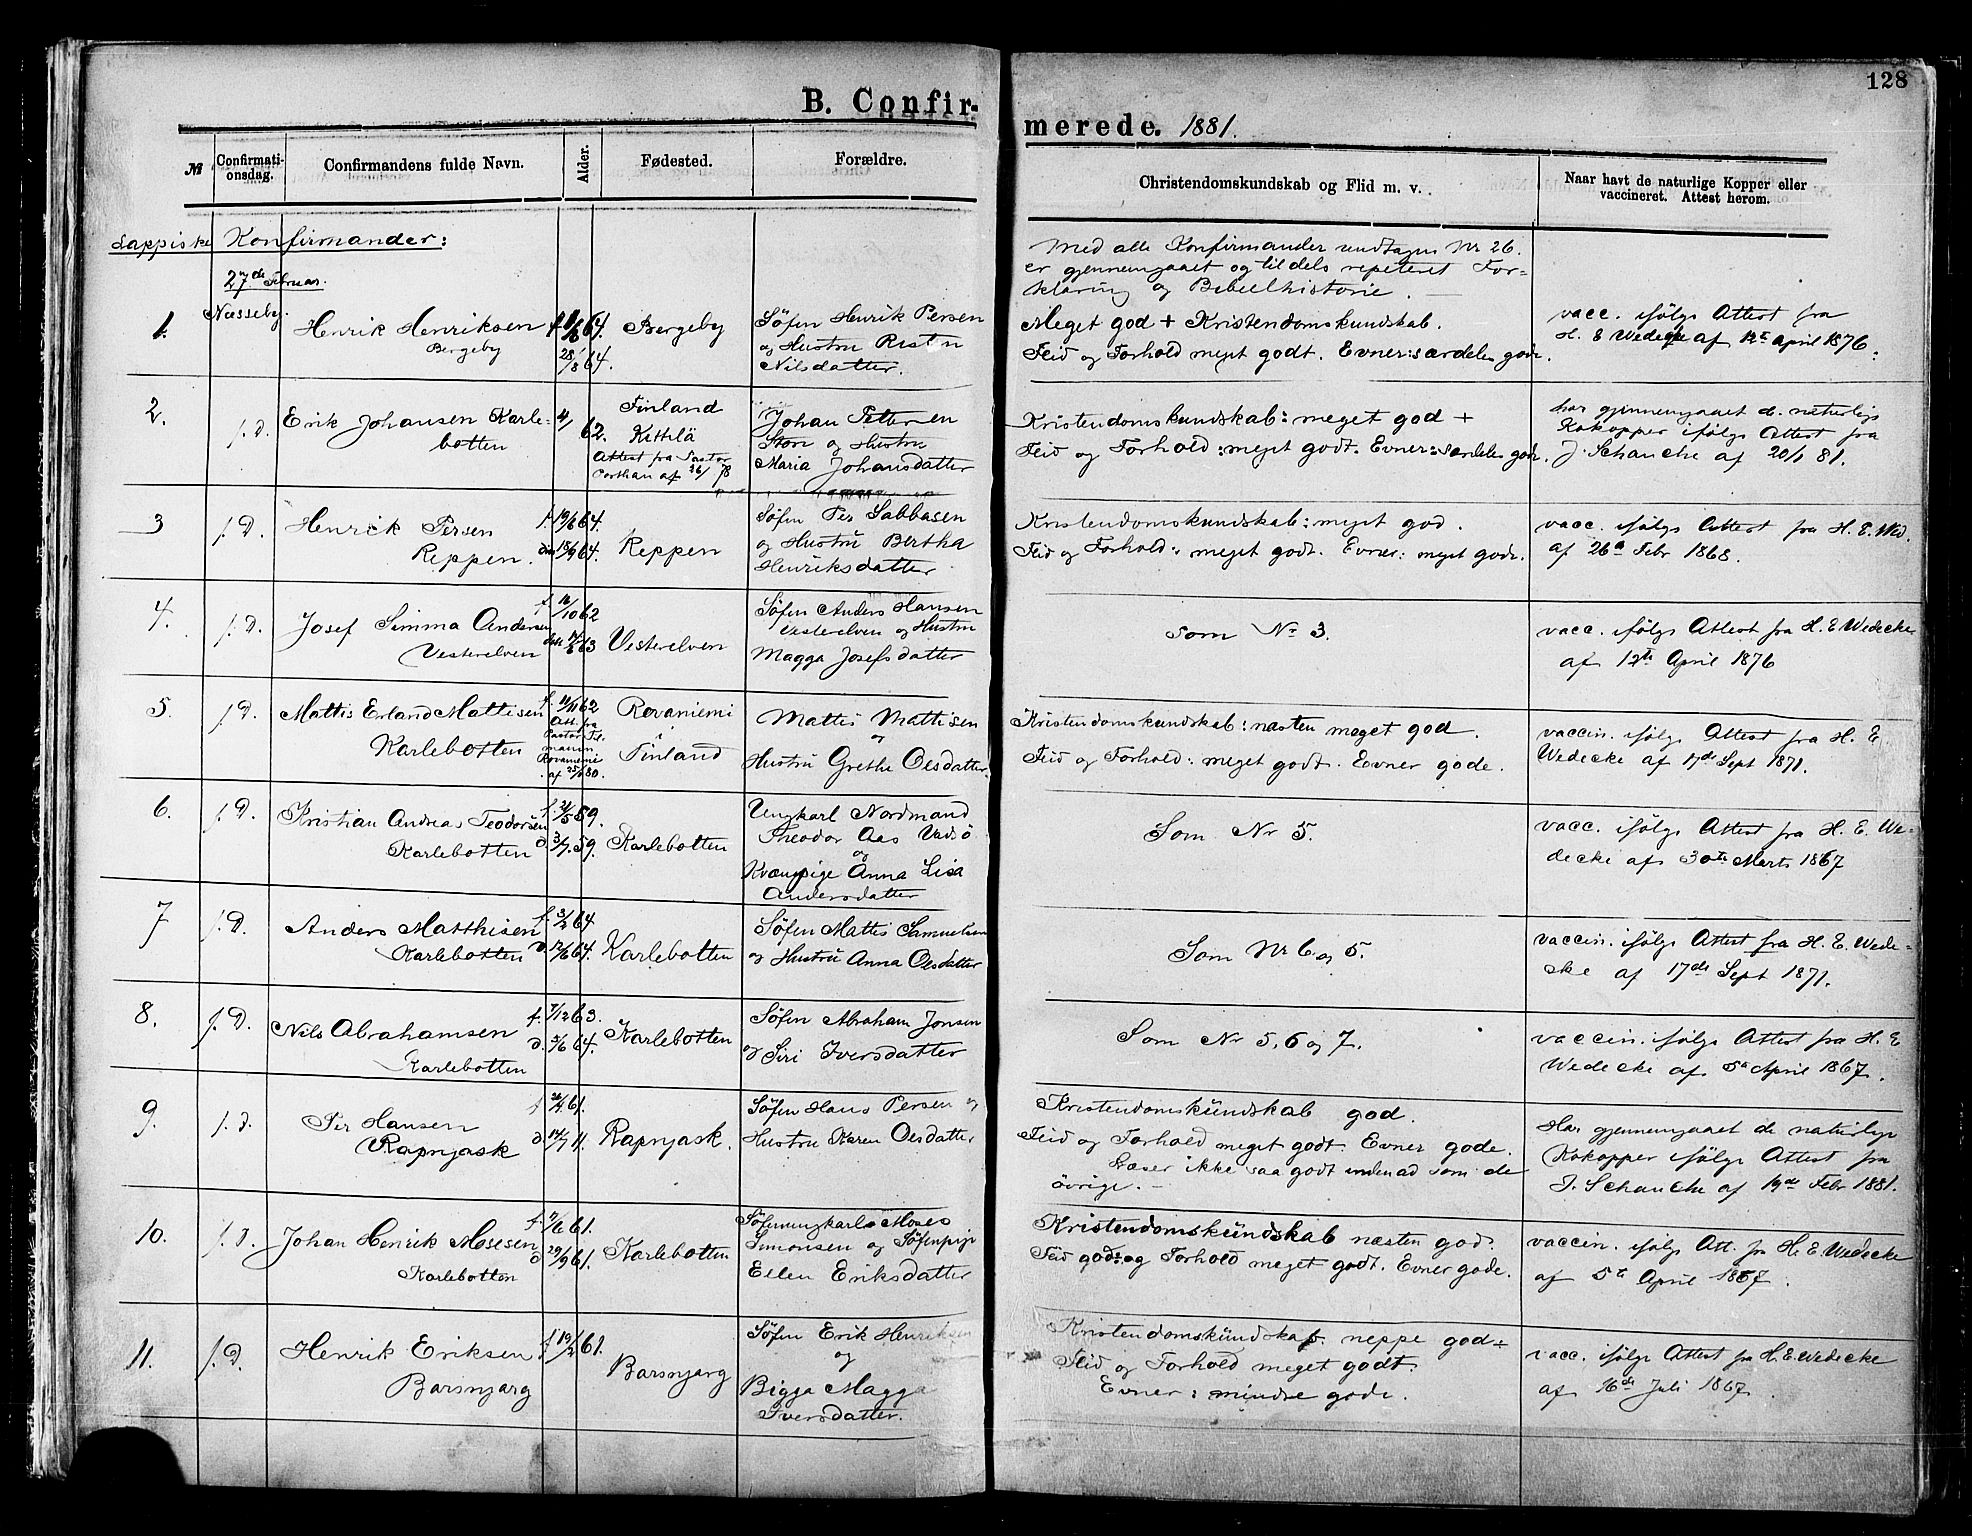 128
B. Confir-
merede. 1881.
№
Confirmati-
onsdag.
Confirmandens fulde Navn.
Alder.
Fødested.
Forældre.
Christendomskundskab og Flid m. v.
Naar havt de naturlige Kopper eller
vaccineret. Attest herom.
Lappiske Konfirmander:
27de Februar.
Næsseby.
Med alle Konfirmander undtagen Nr 26
er gjennemgaaet og tildels repeteret For-
klaring og Bibelhistorie.
1.
Henrik Henriksen
Bergeby
28/8 64.
Bergeby
Søfin Henrik Persen
og Hustru Ristin
Nilsdatter.
Meget god + Kristendomskundskab.
Flid og Forhold meget godt. Evner: særdeles gode.
vacc. ifølge Attest fra
H. E Wedecke af 12te April 1876.
2.
f. D.
Erik Johansen Karle-
botten
62.
Finland
Kittilä
Attest fra Pastor
af 26/1 78
Johan Petter en
og Hustru
Maria Johansdatter
Kristendomskundskab: meget god +
Flid og Forhold: meget godt. Evner: særdeles gode.
har gjennemgaaet d. naturlige
Kokopper ifølge Attest fra
J. Schanche af 20/1 81.
3
f. D.
Henrik Persen
Reppen.
f. 19/6 64.
18/9 64.
Reppen
Søfin Per Sabbasen
og Hustru Bertha
Henriksdatter
Kristendomskundskab: meget god.
Flid og Forhold: meget godt. Evner: meget gode.
vacc. ifølge Attest fra H. E. Wed.
af 26de Febr 1868.
4.
f. D.
Josef Simma Andersen
Vesterelven
f. 16/10 62
63
Vesterelven
Søfin Anders Hansen
Vesterelven og Hustru
Magga Josefsdatter
Som Nr 3.
vacc. ifølge Attest fra H. E Wedecke
af 12te April 1876
5.
f. D.
Mattis Erland Mattisen
Karlebotten
62
Att. fra
Pastor
Rovaniemi
80.
Rovaniemi
i
Finland
Mattis Mattisen
og
Hustru Grethe Olsdatter
Kristendomskundskab: næsten meget god.
Flid og Forhold: meget godt. Evner gode.
vaccin. ifølge Attest fra H. E
Wedecke af 17de Sept 1871.
6.
f. D.
Kristian Andreas Teodorsen
Karlebotten
f. 21/5 59.
d. 3/7. 59.
Karlebotten
Ungkarl Nordmand
Theodor Aas Vadsö
og
Kvænpige Anna Lisa
Andersdatter
Som Nr 5.
vacc. ifølge Attest fra H. E. We-
decke af 30te Marts 1867
7
f. D.
Anders Matthisen
Karlebotten
f. 3/2 64
d. 12/6 64.
Karlebotten
Søfin Mattis Samuelsen
og Hustru Anna Olsdatter
Som Nr 6 og 5.
vaccin. ifølge Attest fra H. E. Wede-
cke af 17de Sept 1871.
8.
f. D.
Nils Abrahamsen
Karlebotten
f. 7/12 63.
d. 5/6 64.
Karlebotten
Søfin Abraham Jonsen
og Siri Iversdatter
Som Nr 5, 6 og 7.
vaccin. ifølge Attest fra H. E
Wedecke af 5te April 1867.
9.
f. d.
Per Hansen
Rapnjask
61.
d. 14/7 11.
Rapnjask.
Søfin Hans Persen og
Hustru Karen Olsdatter
Kristendomskündskab god.
Flid og Forhold meget godt. Evner gode.
Læser ikke saa godt indenad som de
övrige. —
Har gjennemgaaet de naturlige
Kokopper ifølge Attest fra
J. Schanche af 19de Febr 1881.
10.
f. D.
Johan Henrik Mosesen
Karlebotten
f. 7/6 61.
d 29/9 61.
Karlebotten
Søfinungkarl Moses
Simonsen og Søfinpige
Ellen Eriksdatter
Kristendomskündskab næsten god.
Flid god: og Forhold meget godt. Evner gode.
vaccin. ifølge Att. fra H. E. Wedecke
af 5te April 1867.
11.
f. D.
Henrik Eriksen
Barsnjarg
f 19/2 61.
Barsnjarg
Søfin Erik Henriksen
og
Bigga Magga
Iversdatter.
Kristendomskündskab. neppe god +
Flid og Forhold meget godt
Evner: mindre gode.
vacc. ifølge Attest fra H. E. Wedecke
af 16de Juli 1867.